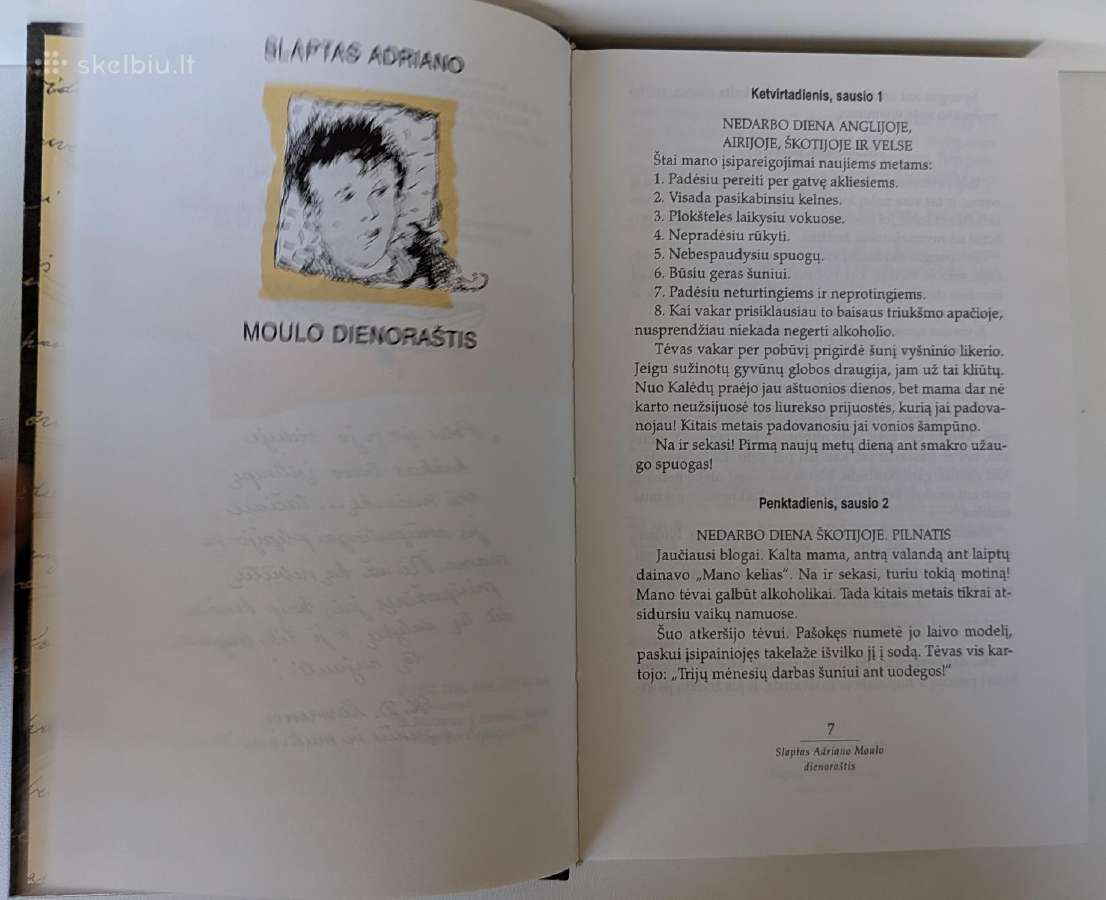 skelbiu.lt
SLAPTAS ADRIANO
MOULO DIENORAŠTIS
Ketvirtadienis, sausio 1
NEDARBO DIENA ANGLIJOJE,
AIRIJOJE, ŠKOTIJOJE IR VELSE
Štai mano įsipareigojimai naujiems metams:
1. Padėsiu pereiti per gatvę akliesiems.
2. Visada pasikabinsiu kelnes.
3. Plokšteles laikysiu vokuose.
4. Nepradėsiu rūkyti.
5. Nebespaudysiu spuogų.
6. Būsiu geras šuniui.
7. Padėsiu neturtingiems ir neprotingiems.
8. Kai vakar prisiklausiau to baisaus triukšmo apačioje,
nusprendžiau niekada negerti alkoholio.
Tėvas vakar per pobūvį prigirdė šunį vyšninio likerio.
Jeigu sužinotų gyvūnų globos draugija, jam už tai kliūtų.
Nuo Kalėdų praėjo jau aštuonios dienos, bet mama dar nė
karto neužsijuosė tos liurekso prijuostės, kurią jai padova-
nojau! Kitais metais padovanosiu jai vonios šampūno.
Na ir sekasi! Pirmą naujų metų dieną ant smakro užau-
go spuogas!
Penktadienis, sausio 2
NEDARBO DIENA ŠKOTIJOJE. PILNATIS
Jaučiausi blogai. Kalta mama, antrą valandą ant laiptų
dainavo „Mano kelias“. Na ir sekasi, turiu tokią motiną!
Mano tėvai galbūt alkoholikai. Tada kitais metais tikrai at-
sidursiu vaikų namuose.
Šuo atkeršijo tėvui. Pašokęs numetė jo laivo modelį,
paskui įsipainiojęs takelaže išvilko jį į sodą. Tėvas vis kar-
tojo: „Trijų mėnesių darbas šuniui ant uodegos!“
7
Slaptas Adriano Moulo
dienoraštis